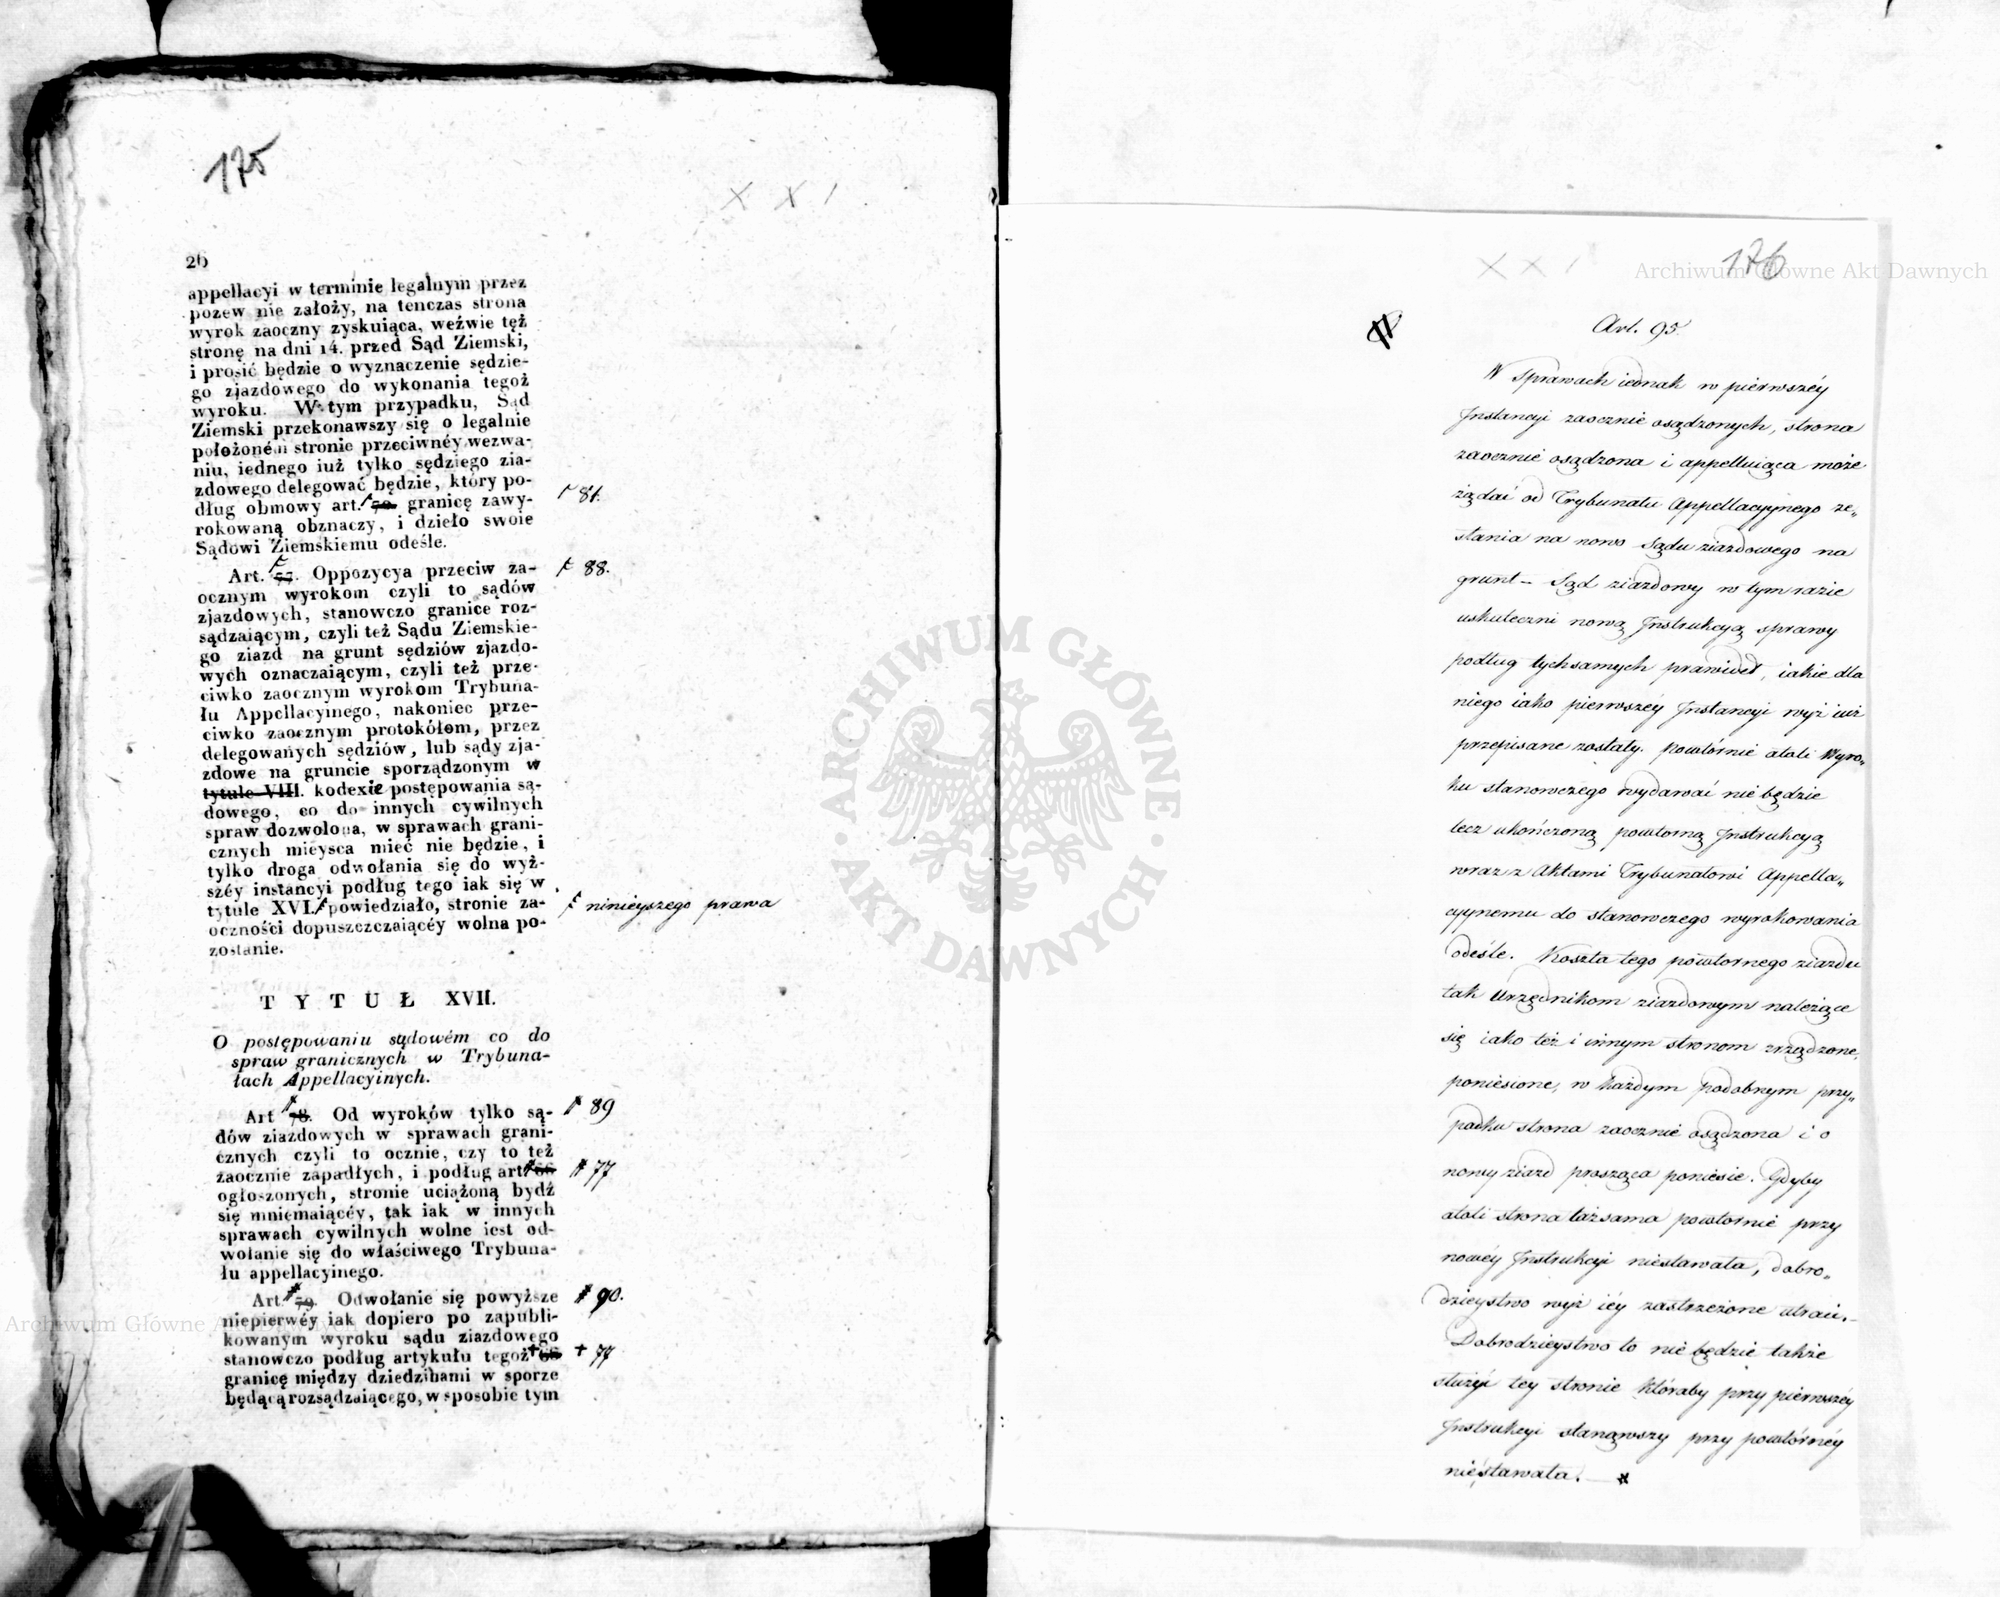 175
X X I
26
appellacyi w terminie legalnym przez
pozew nie założy, na tenczas strona
wyrok zaoczny zyskuiąca, weźwie tęż
stronę na dni 14. przed Sąd Ziemski,
i prosić będzie o wyznaczenie sędzie-
go zjazdowego do wykonania tegoż
wyroku. W tym przypadku, Sąd
Ziemski przekonawszy się o legalnie
położoném stronie przeciwnéy wezwa-
niu, iednego iuż tylko sędziego zia-
zdowego delegować będzie, który po-
dług obmowy art. granicę zawy- 81.
rokowaną obznaczy, i dzieło swoie
Sądowi Ziemskiemu odeśle.
Art. 77. Oppozycya przeciw za- 88.
ocznym wyrokom czyli to sądów
zjazdowych, stanowczo granice roz-
sądzaiącym, czyli też Sądu Ziemskie-
go ziazd na grunt sędziów zjazdo-
wych oznaczaiącym, czyli też prze-
ciwko zaocznym wyrokom Trybuna-
łu Appellacyinego, nakoniec prze-
ciwko zaocznym protokółom, przez
delegowanych sędziów, lub sądy zja-
zdowe na gruncie sporządzonym w
tytule VIII. kodexie postępowania są-
dowego, co do innych cywilnych
spraw dozwolona, w sprawach grani-
cznych mieysca mieć nie będzie, i
tylko droga odwołania się do wyż-
széy instancyi podług tego iak się w
tytule XVI. powiedziało, stronie za- ninieyszego prawa
oczności dopuszczczaiącéy wolna po-
zostanie.
TYTUŁ XVII.
O postępowaniu sądowém co do
spraw granicznych w Trybuna-
łach Appellacyinych.
Art 78. Od wyroków tylko są- # 89
dów ziazdowych w sprawach grani-
cznych czyli to ocznie, czy to też
zaocznie zapadłych, i podług art. # 77
ogłoszonych, stronie uciążoną bydź
się mniemaiącéy, tak iak w innych
sprawach cywilnych wolne iest od-
wołanie się do właściwego Trybuna-
łu appellacyinego.
Art. 79. Odwołanie się powyższe # 90.
niepierwéy iak dopiero po zapubli-
kowanym wyroku sądu ziazdowego
stanowczo podług artykułu tegoż + 77
granicę między dziedzinami w sporze
będącą rozsądzaiącego, w sposobie tym
X X I
176
Art. 95
W Sprawach iednak w pierwszéy
Instancyi zaocznie osądzonych, strona
zaocznie osądzona i appelluiąca może
żądać od Trybunału Appellacyjnego ze„
słania na nowo Sądu ziazdowego na
grunt – Sąd ziazdowy w tym razie
uskuteczni nową Instrukcyą sprawy
podług tychsamych prawideł, iakie dla
niego iako pierwszéy Instancyi wyż iuż
przepisane zostały. powtórnie atoli Wyro„
ku stanowczego wydawać nie będzie
lecz ukończoną powtorną Instrukcyą
wraz z Aktami Trybunałowi Appella„
cyynemu do stanowczego wyrokowania
odeśle. Koszta tego powtornego ziazdu
tak Urzędnikom ziazdowym należące
się iako też i innym stronom zrządzone,
poniesione, w każdym podobnym przy„
padku strona zaocznie osądzona i o
nowy ziazd prosząca poniesie. Gdyby
atoli strona tażsama powtornie przy
nowéy Instrukcyi niestawała, dobro„
dzieystwo wyż iéy zastrzeżone utraci.–
Dobrodzieystwo to nie będzie także
służyć tey stronie któraby przy pierwszéy
Instrukcyi stanąwszy przy powtórnéy
niestawała. – #
Archiwum Główne Akt Dawnych
Archiwum Główne Akt Dawnych
ARCHIWUM GŁÓWNE
AKT DAWNYCH